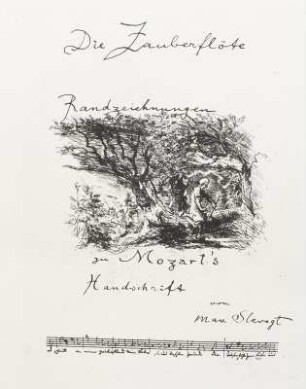 Die Zauberflöte
Randzeichnungen
zu Mozart's
Handschrift
von
Max Slevogt